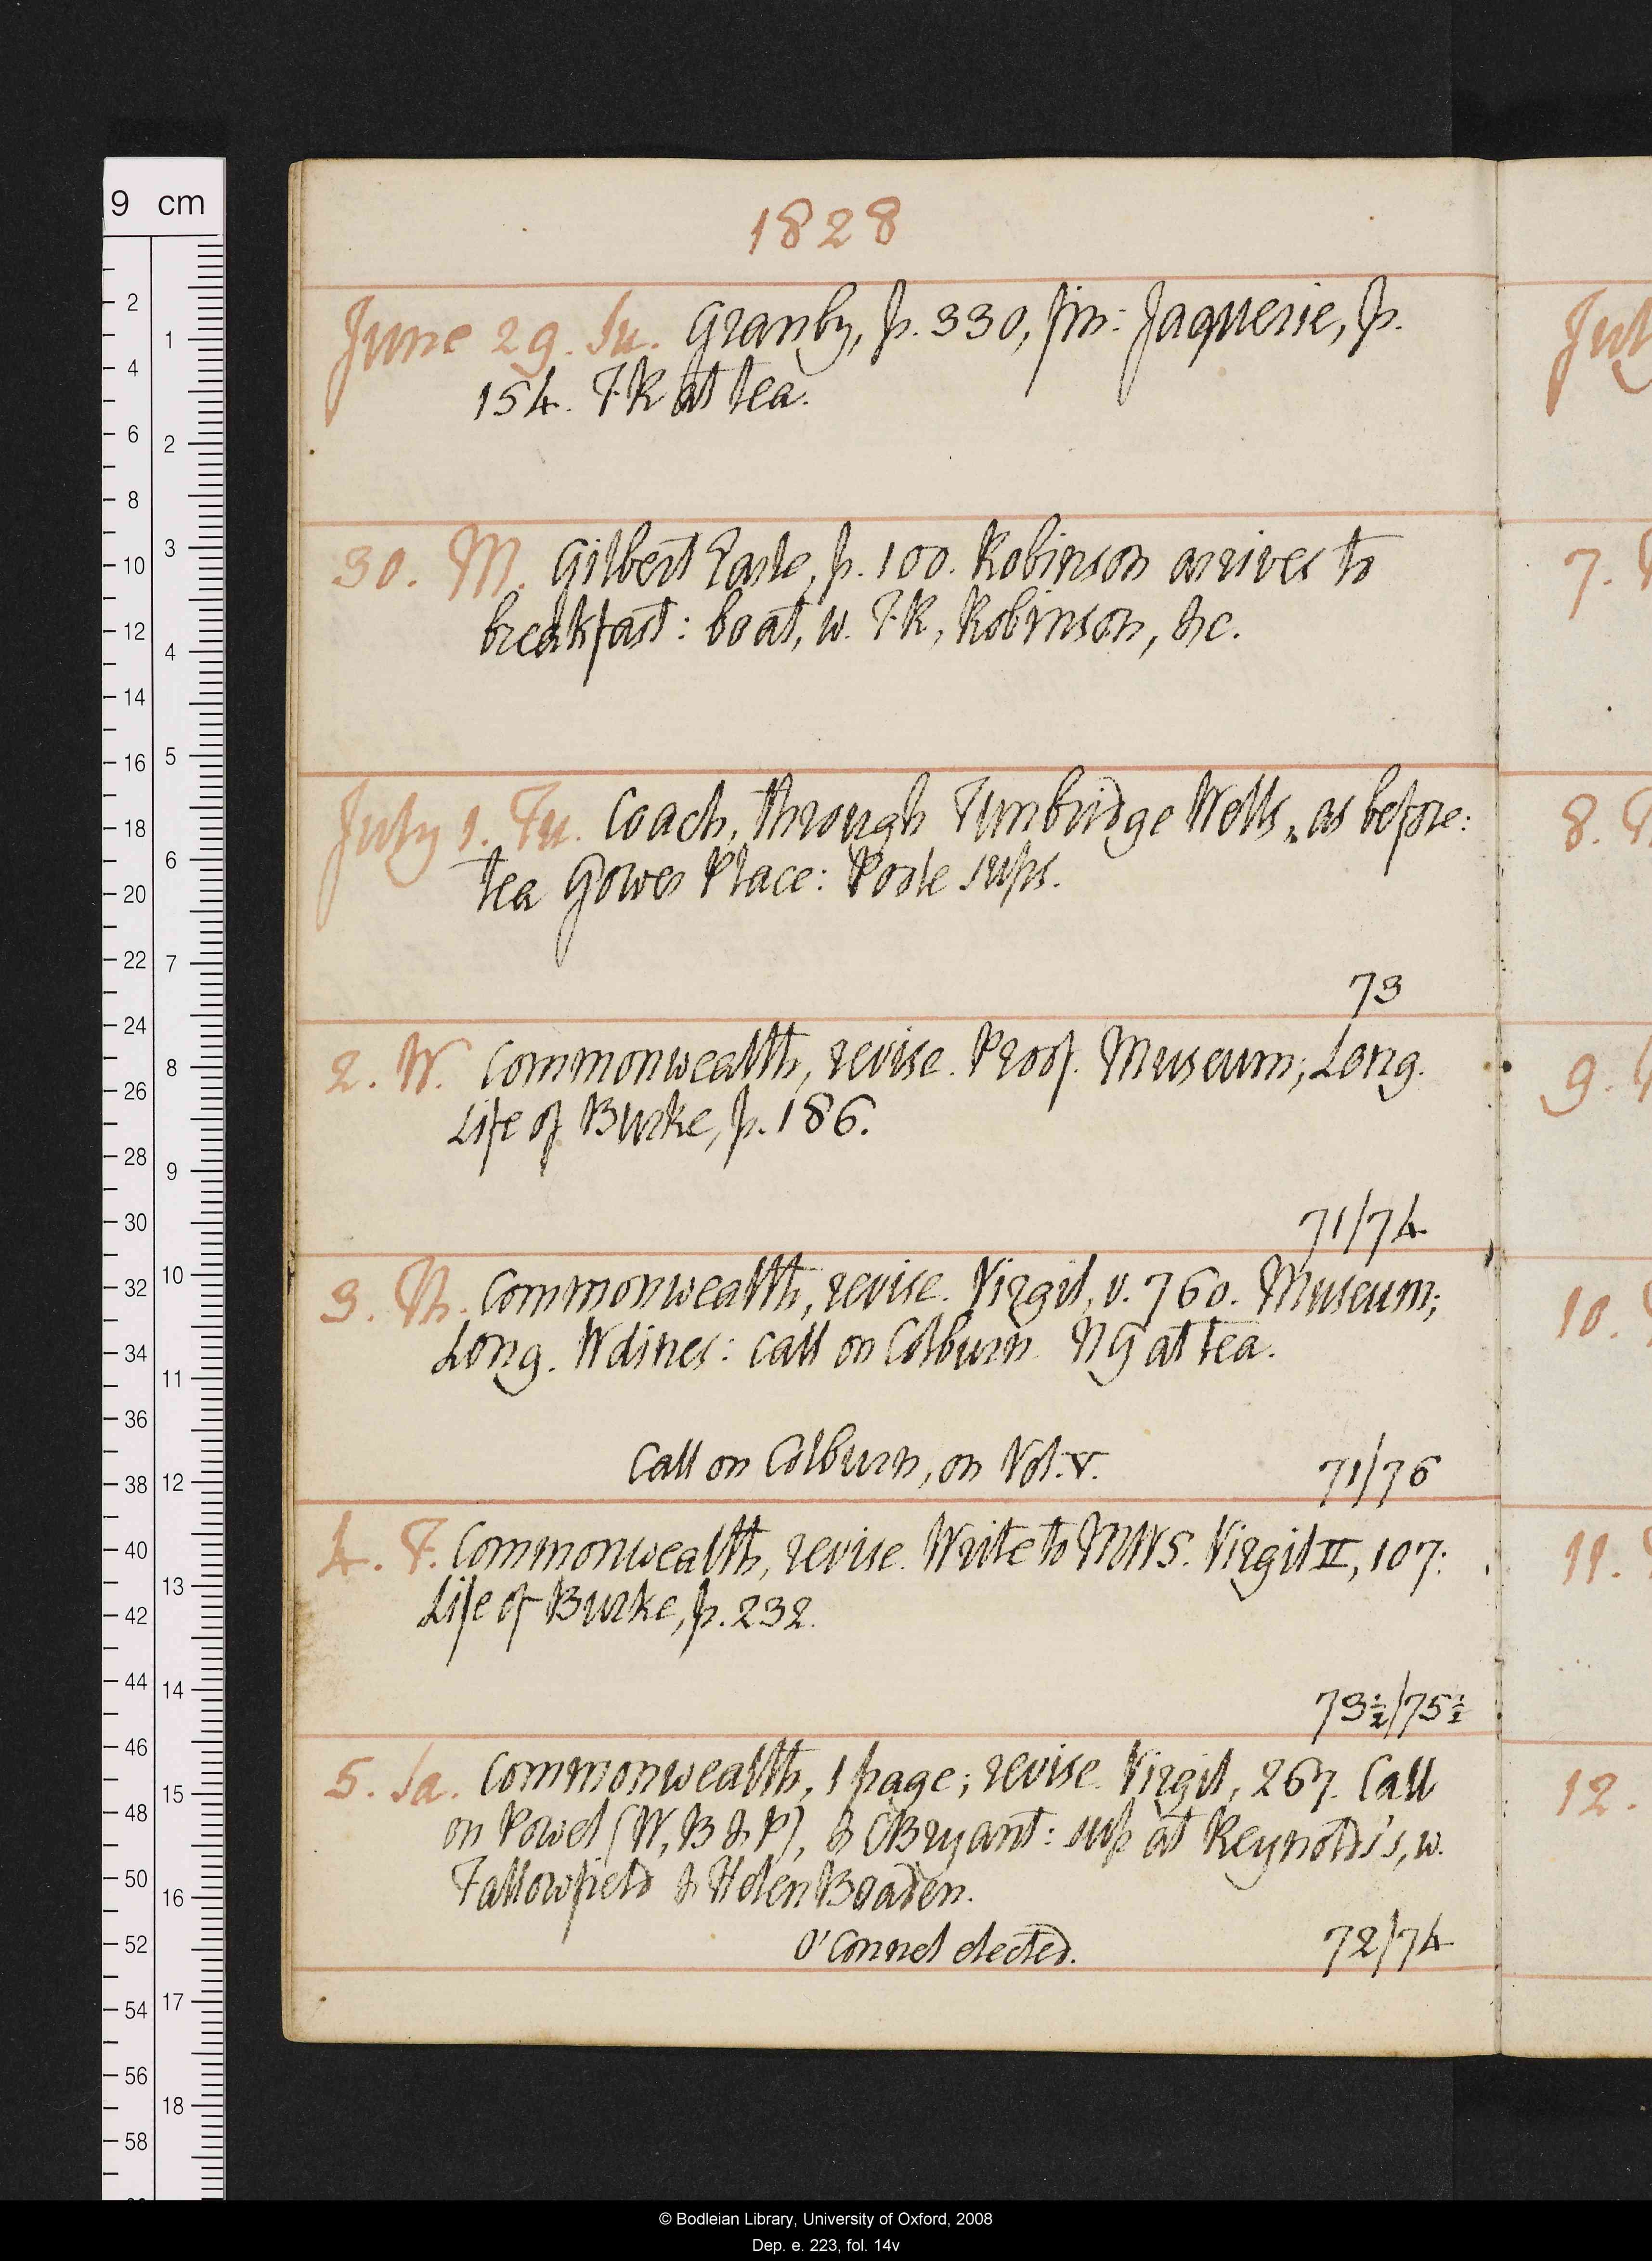 1828
June 29. Su. Granby, p. 330, fin: Jaquerie, p.
154. FK at tea.
30. M. Gilbert Earle, p. 100. Robinson arrives to
breakfast: boat, w. FK, Robinson, &c.
July 1. Tu. Coach, through Tunbridge Wells, as before:
tea Gower Place: Poole sups.
73
2. W. Commonwealth, revise. Proof. Museum; Long.
Life of Burke, p. 186.
71/74
3. Th. Commonwealth, revise. Virgil, v. 760. Museum;
Long. W dines: call on Colburn. NG at tea.
Call on Colburn, on Vol. V.
71/76
4. F. Commonwealth, revise. Write to MWS. Virgil II, 107:
Life of Burke, p. 232.
73½/75½
5. Sa. Commonwealth, 1 page; revise. Virgil, 267. Call
on Powel (W, B & P), & OBryant: sup at Reynolds's, w.
Fallowfield & Helen Boaden.
O'Connel elected.
72/74
Jul
7.
8.
9.
10.
11.
12.
9 cm
2
4
6
8
10
12
14
16
18
20
22
24
26
28
30
32
34
36
38
40
42
44
46
48
50
52
54
56
58
1
2
3
4
5
6
7
8
9
10
11
12
13
14
15
16
17
18
© Bodleian Library, University of Oxford, 2008
Dep. e. 223, fol. 14v